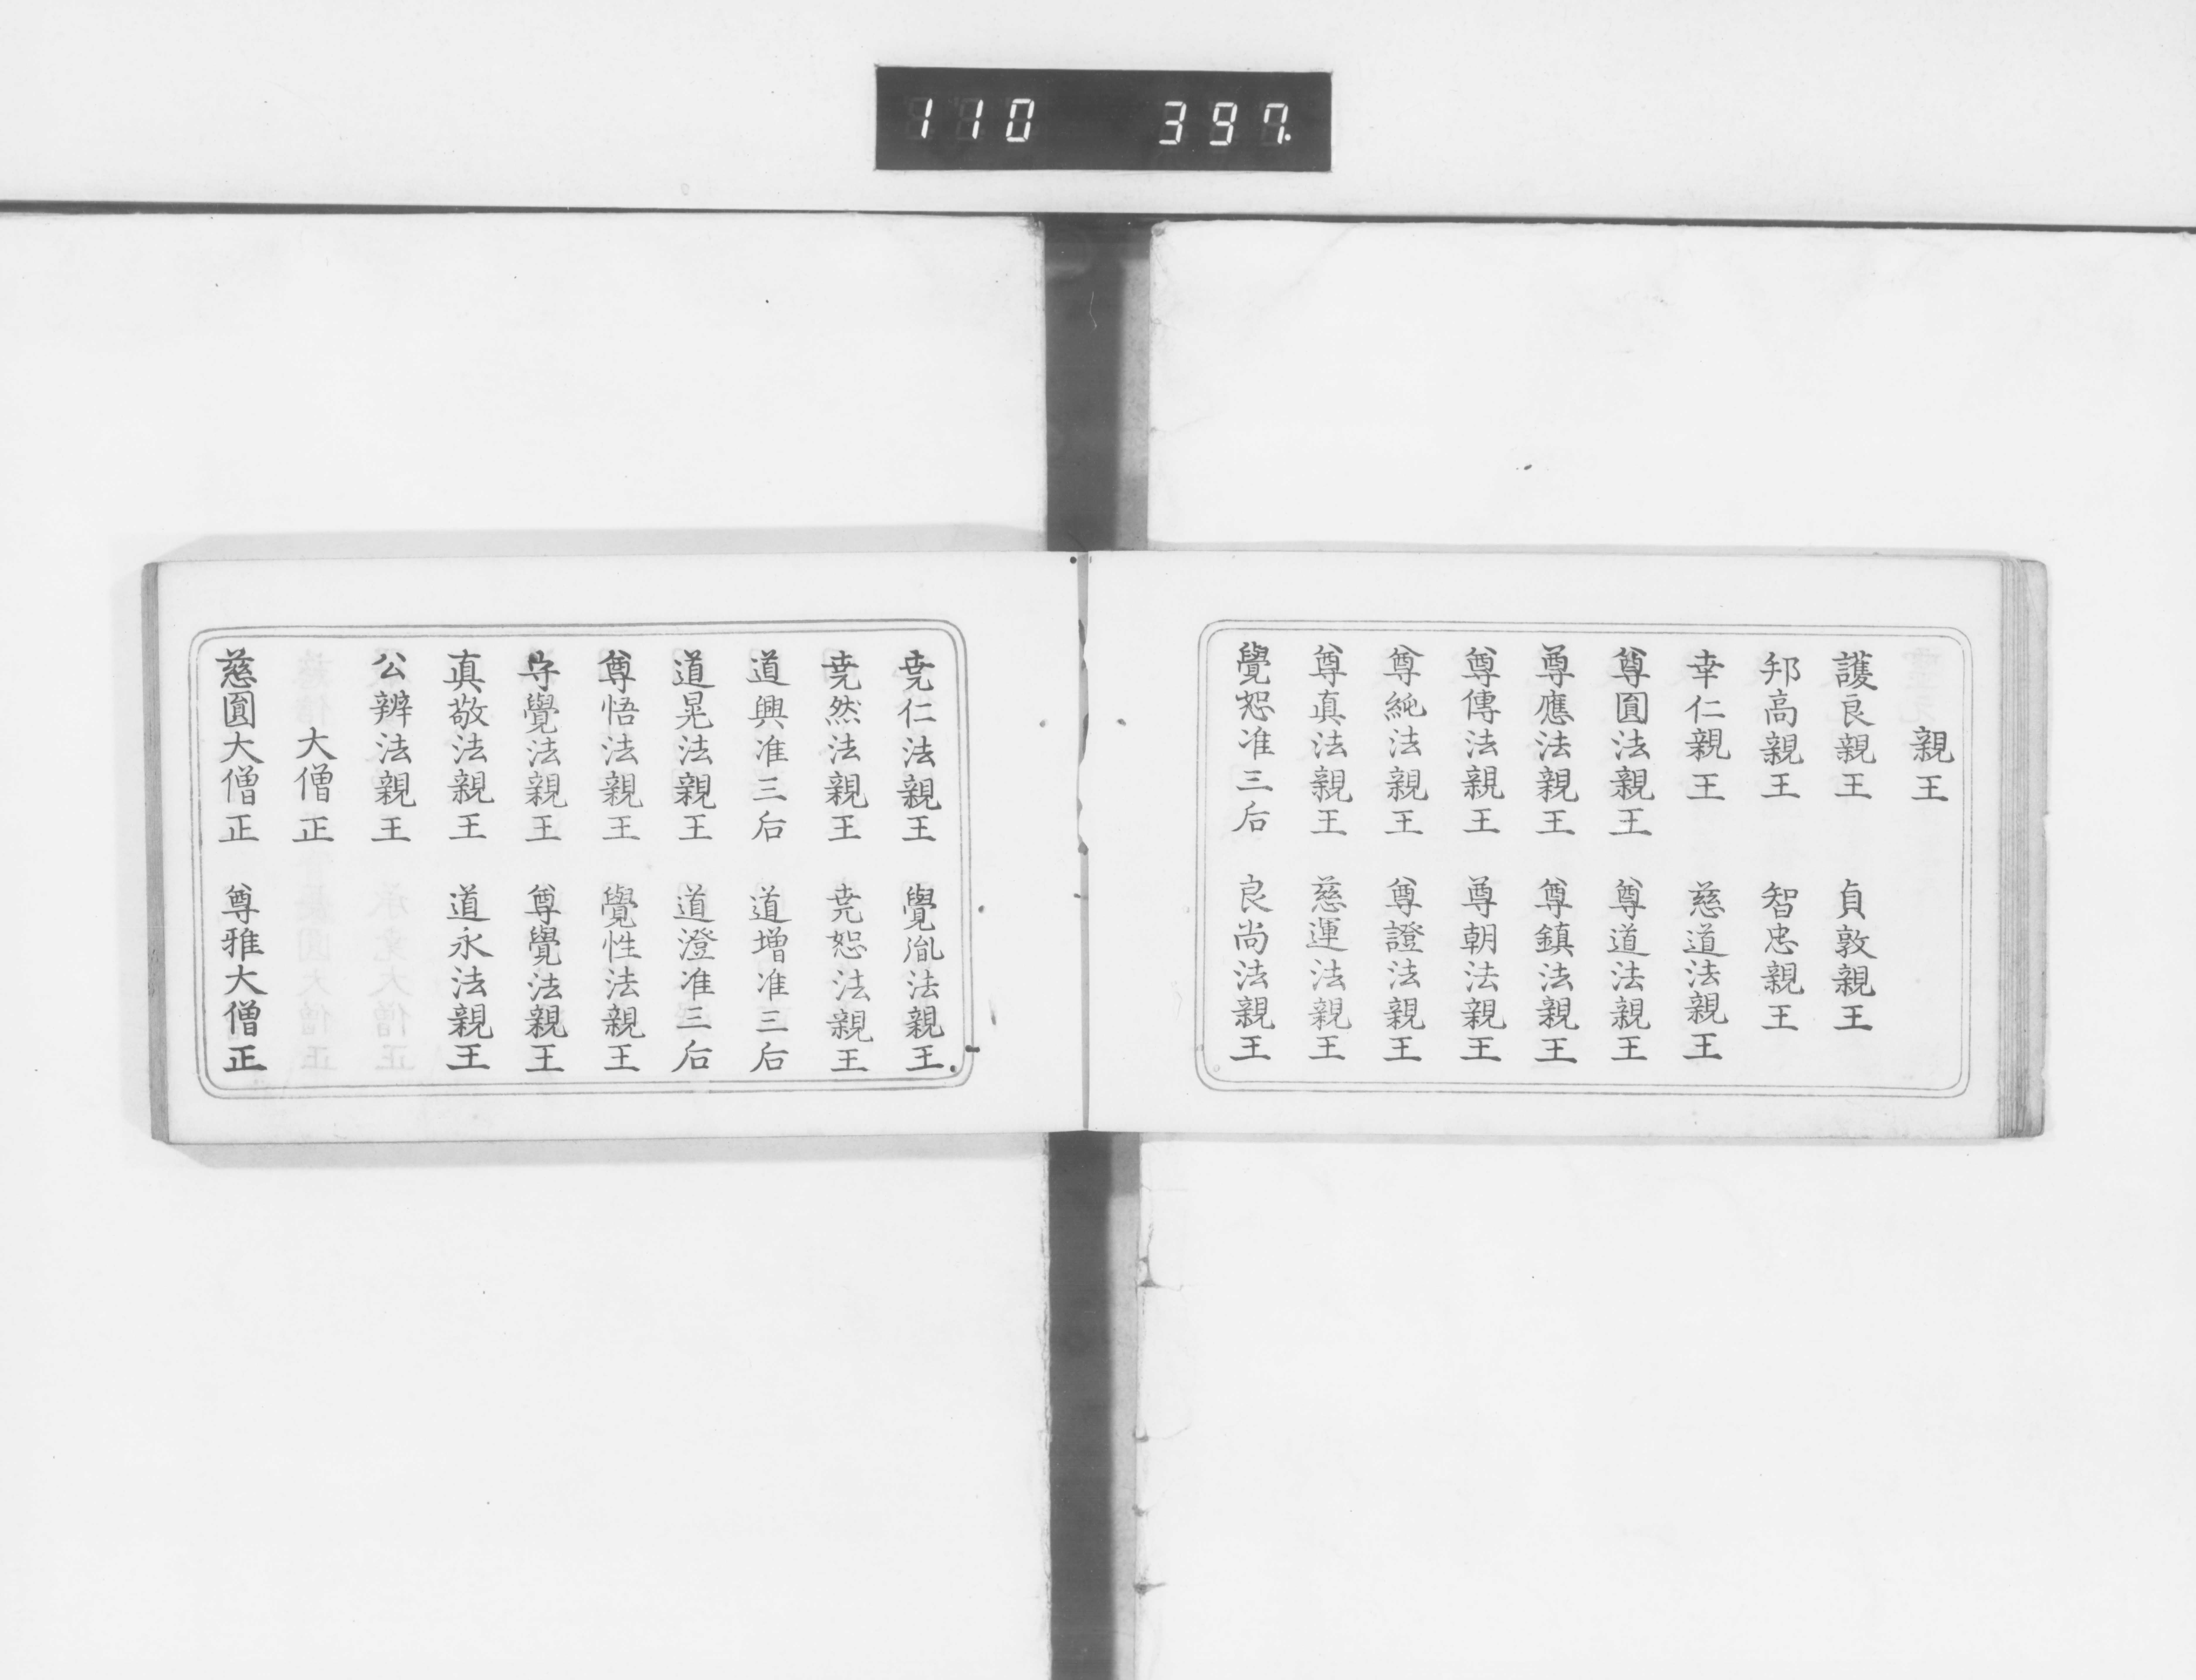 110 397.
親王
護良親王 貞敦親王
邦高親王 智忠親王
幸仁親王 慈道法親王
尊圓法親王 尊道法親王
尊應法親王 尊鎮法親王
尊傳法親王 尊朝法親王
尊純法親王 尊證法親王
尊真法親王 慈運法親王
覺恕准三后 良尚法親王
尭仁法親王 覺胤法親王
尭然法親王 尭恕法親王
道興准三后 道増准三后
道晃法親王 道澄准三后
尊悟法親王 覺性法親王
守覺法親王 尊覺法親王
真敬法親王 道永法親王
公辨法親王
大僧正
慈圓大僧正 尊雅大僧正